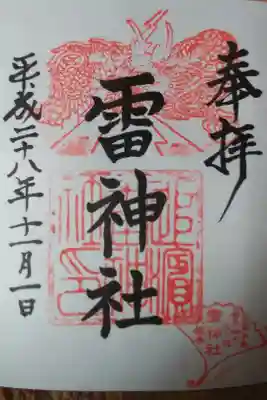 奉拝
雷神社
平成二十八年十一月一日